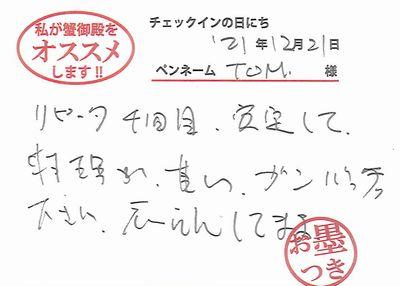 私が蟹御殿を
オススメ
します!!
チェックインの日にち
'21年12月21日
ペンネーム TOM. 様
リピータ 4回目、安定して、
料理が、旨い、ガンバッテ
下さい、応えんしてます
お墨
つき